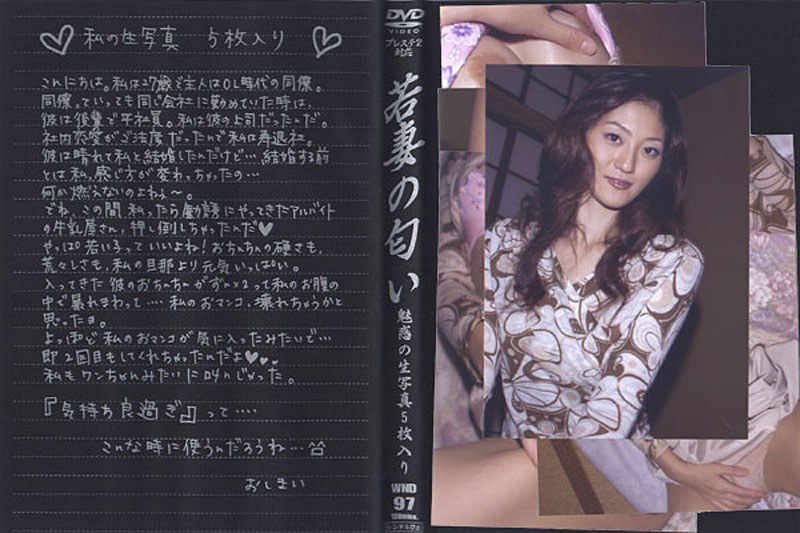 私の生写真 5枚入り
こんにちは。私は27歳で主人はOL時代の同僚。
同僚っていっても同じ会社に勤めていた時は、
彼は後輩で平社員。私は彼の上司だったんだ。
社内恋愛がご法度だったんで私は寿退社。
彼は晴れて私と結婚したんだけど…結婚する前
とは私、感じ方が変わっちゃったの…
何か燃えないのよねぇ～。
でね、この間私ったら勧誘にやってきたアルバイト
の牛乳屋さん、押し倒しちゃったんだ♥
やっぱ若い子っていいよね！おちんちんの硬さも、
荒々しさも、私の旦那より元気いっぱい。
入ってきた彼のおちんちんが
って私のお腹の
中で暴れまわって…私のおマンコ、壊れちゃうかと
思ったヨ。
よっぽど私のおマンコが気に入ったみたいで…
即2回目もしてくれちゃったんだよ♥♥♥
私もワンちゃんみたいに叫んじゃった。
『気持ち良過ぎ』って‥‥
こんな時に使うんだろうね…
おしまい
DVD
VIDEO
プレステ2
対応
若妻の匂い
魅惑の生写真5枚入り
WND
97
120mins.